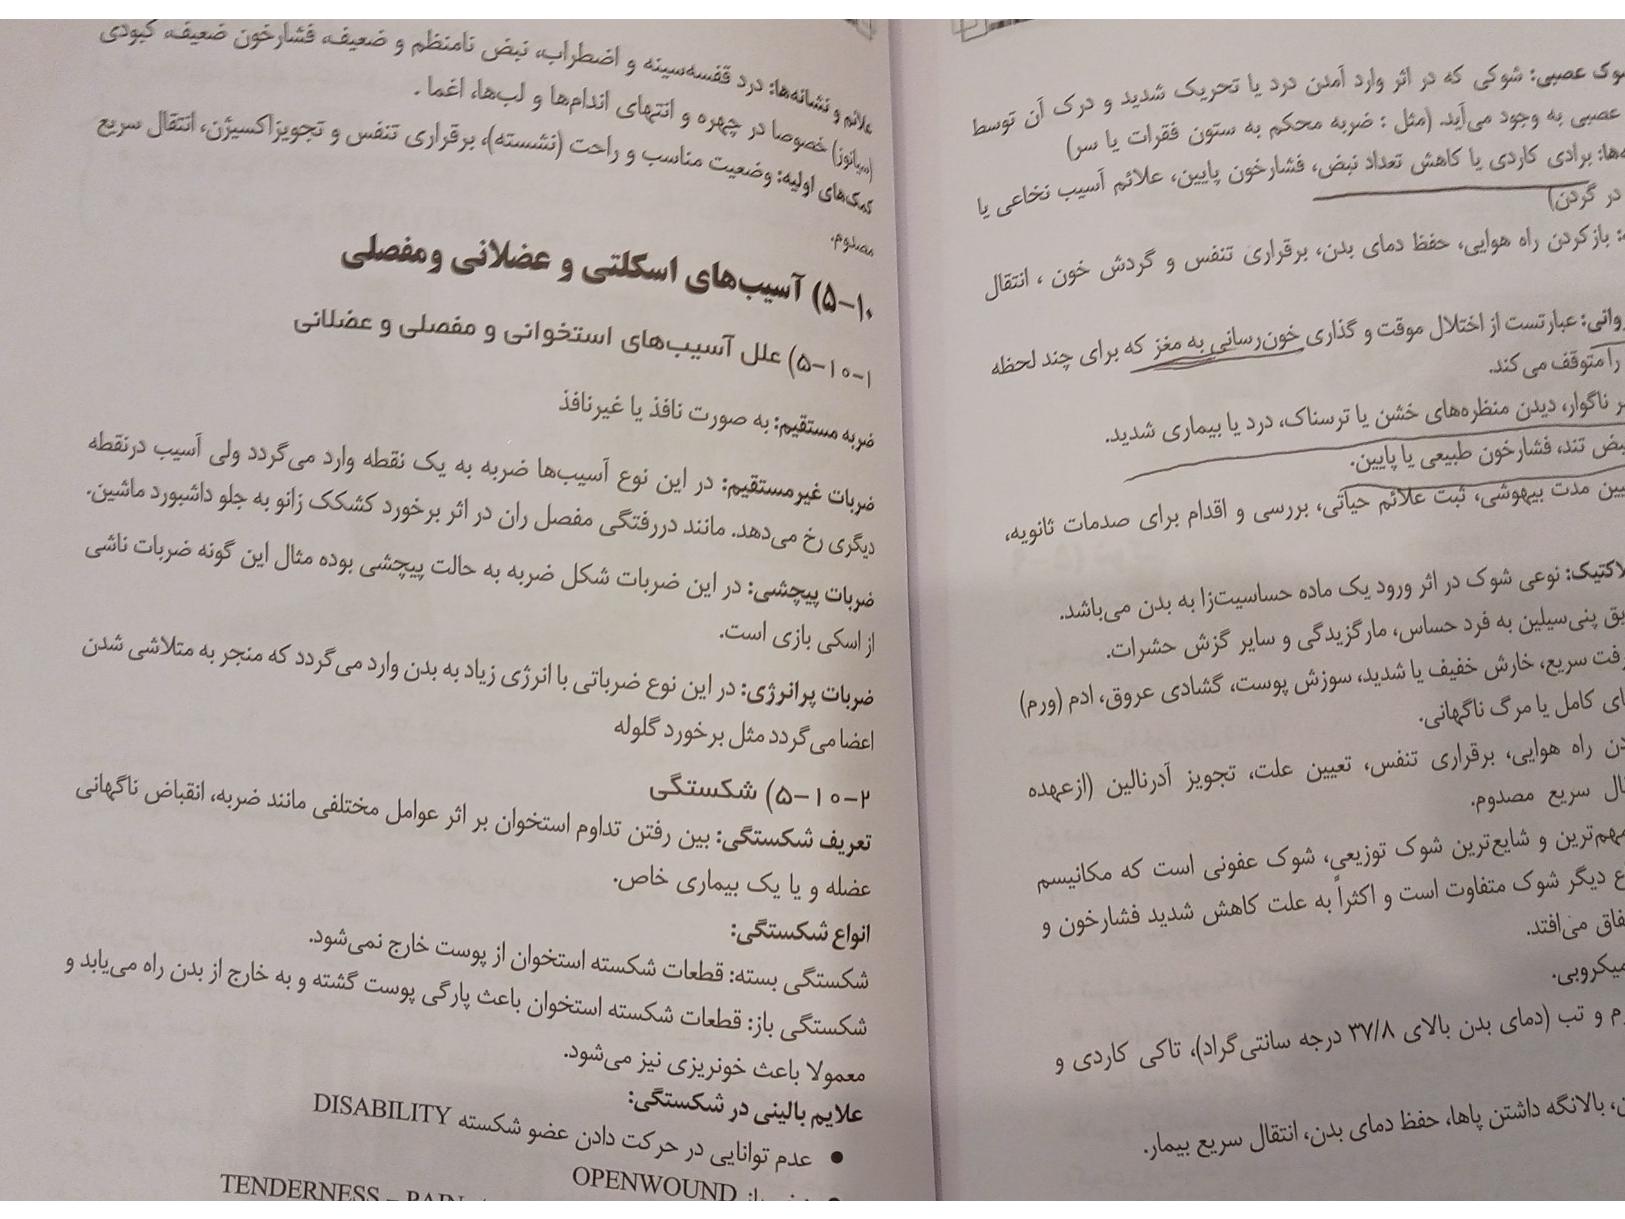 شوک عصبی: شوکی که در اثر وارد آمدن درد یا تحریک شدید و درک آن توسط
عصبی به وجود می‌آید. (مثل : ضربه محکم به ستون فقرات یا سر)
برادی کاردی یا کاهش تعداد نبض، فشارخون پایین، علائم آسیب نخاعی یا
در گردن)
بازکردن راه هوایی، حفظ دمای بدن، برقراری تنفس و گردش خون ، انتقال
عبارتست از اختلال موقت و گذاری خون‌رسانی به مغز که برای چند لحظه
را متوقف می کند.
ناگوار، دیدن منظره‌های خشن یا ترسناک، درد یا بیماری شدید.
تند، فشارخون طبیعی یا پایین.
مدت بیهوشی، ثبت علائم حیاتی، بررسی و اقدام برای صدمات ثانویه،
نوعی شوک در اثر ورود یک ماده حساسیت‌زا به بدن می‌باشد.
پنی‌سیلین به فرد حساس، مارگزیدگی و سایر گزش حشرات.
سریع، خارش خفیف یا شدید، سوزش پوست، گشادی عروق، ادم (ورم)
کامل یا مرگ ناگهانی.
راه هوایی، برقراری تنفس، تعیین علت، تجویز آدرنالین (ازعهده
سریع مصدوم.
مهم‌ترین و شایع‌ترین شوک توزیعی، شوک عفونی است که مکانیسم
دیگر شوک متفاوت است و اکثراً به علت کاهش شدید فشارخون و
می‌افتد.
میکروبی.
و تب (دمای بدن بالای ۳۷/۸ درجه سانتی‌گراد)، تاکی کاردی و
بالانگه داشتن پاها، حفظ دمای بدن، انتقال سریع بیمار.
علائم و نشانه‌ها: درد قفسه‌سینه و اضطراب، نبض نامنظم و ضعیف، فشارخون ضعیف، کبودی
(سیانوز) خصوصا در چهره و انتهای اندام‌ها و لب‌ها، اغما .
کمک‌های اولیه: وضعیت مناسب و راحت (نشسته)، برقراری تنفس و تجویزاکسیژن، انتقال سریع
مصدوم.
۵-۱۰) آسیب‌های اسکلتی و عضلانی ومفصلی
۵-۱۰-۱) علل آسیب‌های استخوانی و مفصلی و عضلانی
ضربه مستقیم: به صورت نافذ یا غیرنافذ
ضربات غیرمستقیم: در این نوع آسیب‌ها ضربه به یک نقطه وارد می‌گردد ولی آسیب درنقطه
دیگری رخ می‌دهد. مانند دررفتگی مفصل ران در اثر برخورد کشکک زانو به جلو داشبورد ماشین.
ضربات پیچشی: در این ضربات شکل ضربه به حالت پیچشی بوده مثال این گونه ضربات ناشی
از اسکی بازی است.
ضربات پرانرژی: در این نوع ضرباتی با انرژی زیاد به بدن وارد می‌گردد که منجر به متلاشی شدن
اعضا می‌گردد مثل برخورد گلوله
۵-۱۰-۲) شکستگی
تعریف شکستگی: بین رفتن تداوم استخوان بر اثر عوامل مختلفی مانند ضربه، انقباض ناگهانی
عضله و یا یک بیماری خاص.
انواع شکستگی:
شکستگی بسته: قطعات شکسته استخوان از پوست خارج نمی‌شود.
شکستگی باز: قطعات شکسته استخوان باعث پارگی پوست گشته و به خارج از بدن راه می‌یابد و
معمولا باعث خونریزی نیز می‌شود.
علایم بالینی در شکستگی:
● عدم توانایی در حرکت دادن عضو شکسته DISABILITY
● OPENWOUND
TENDERNESS – PAIN